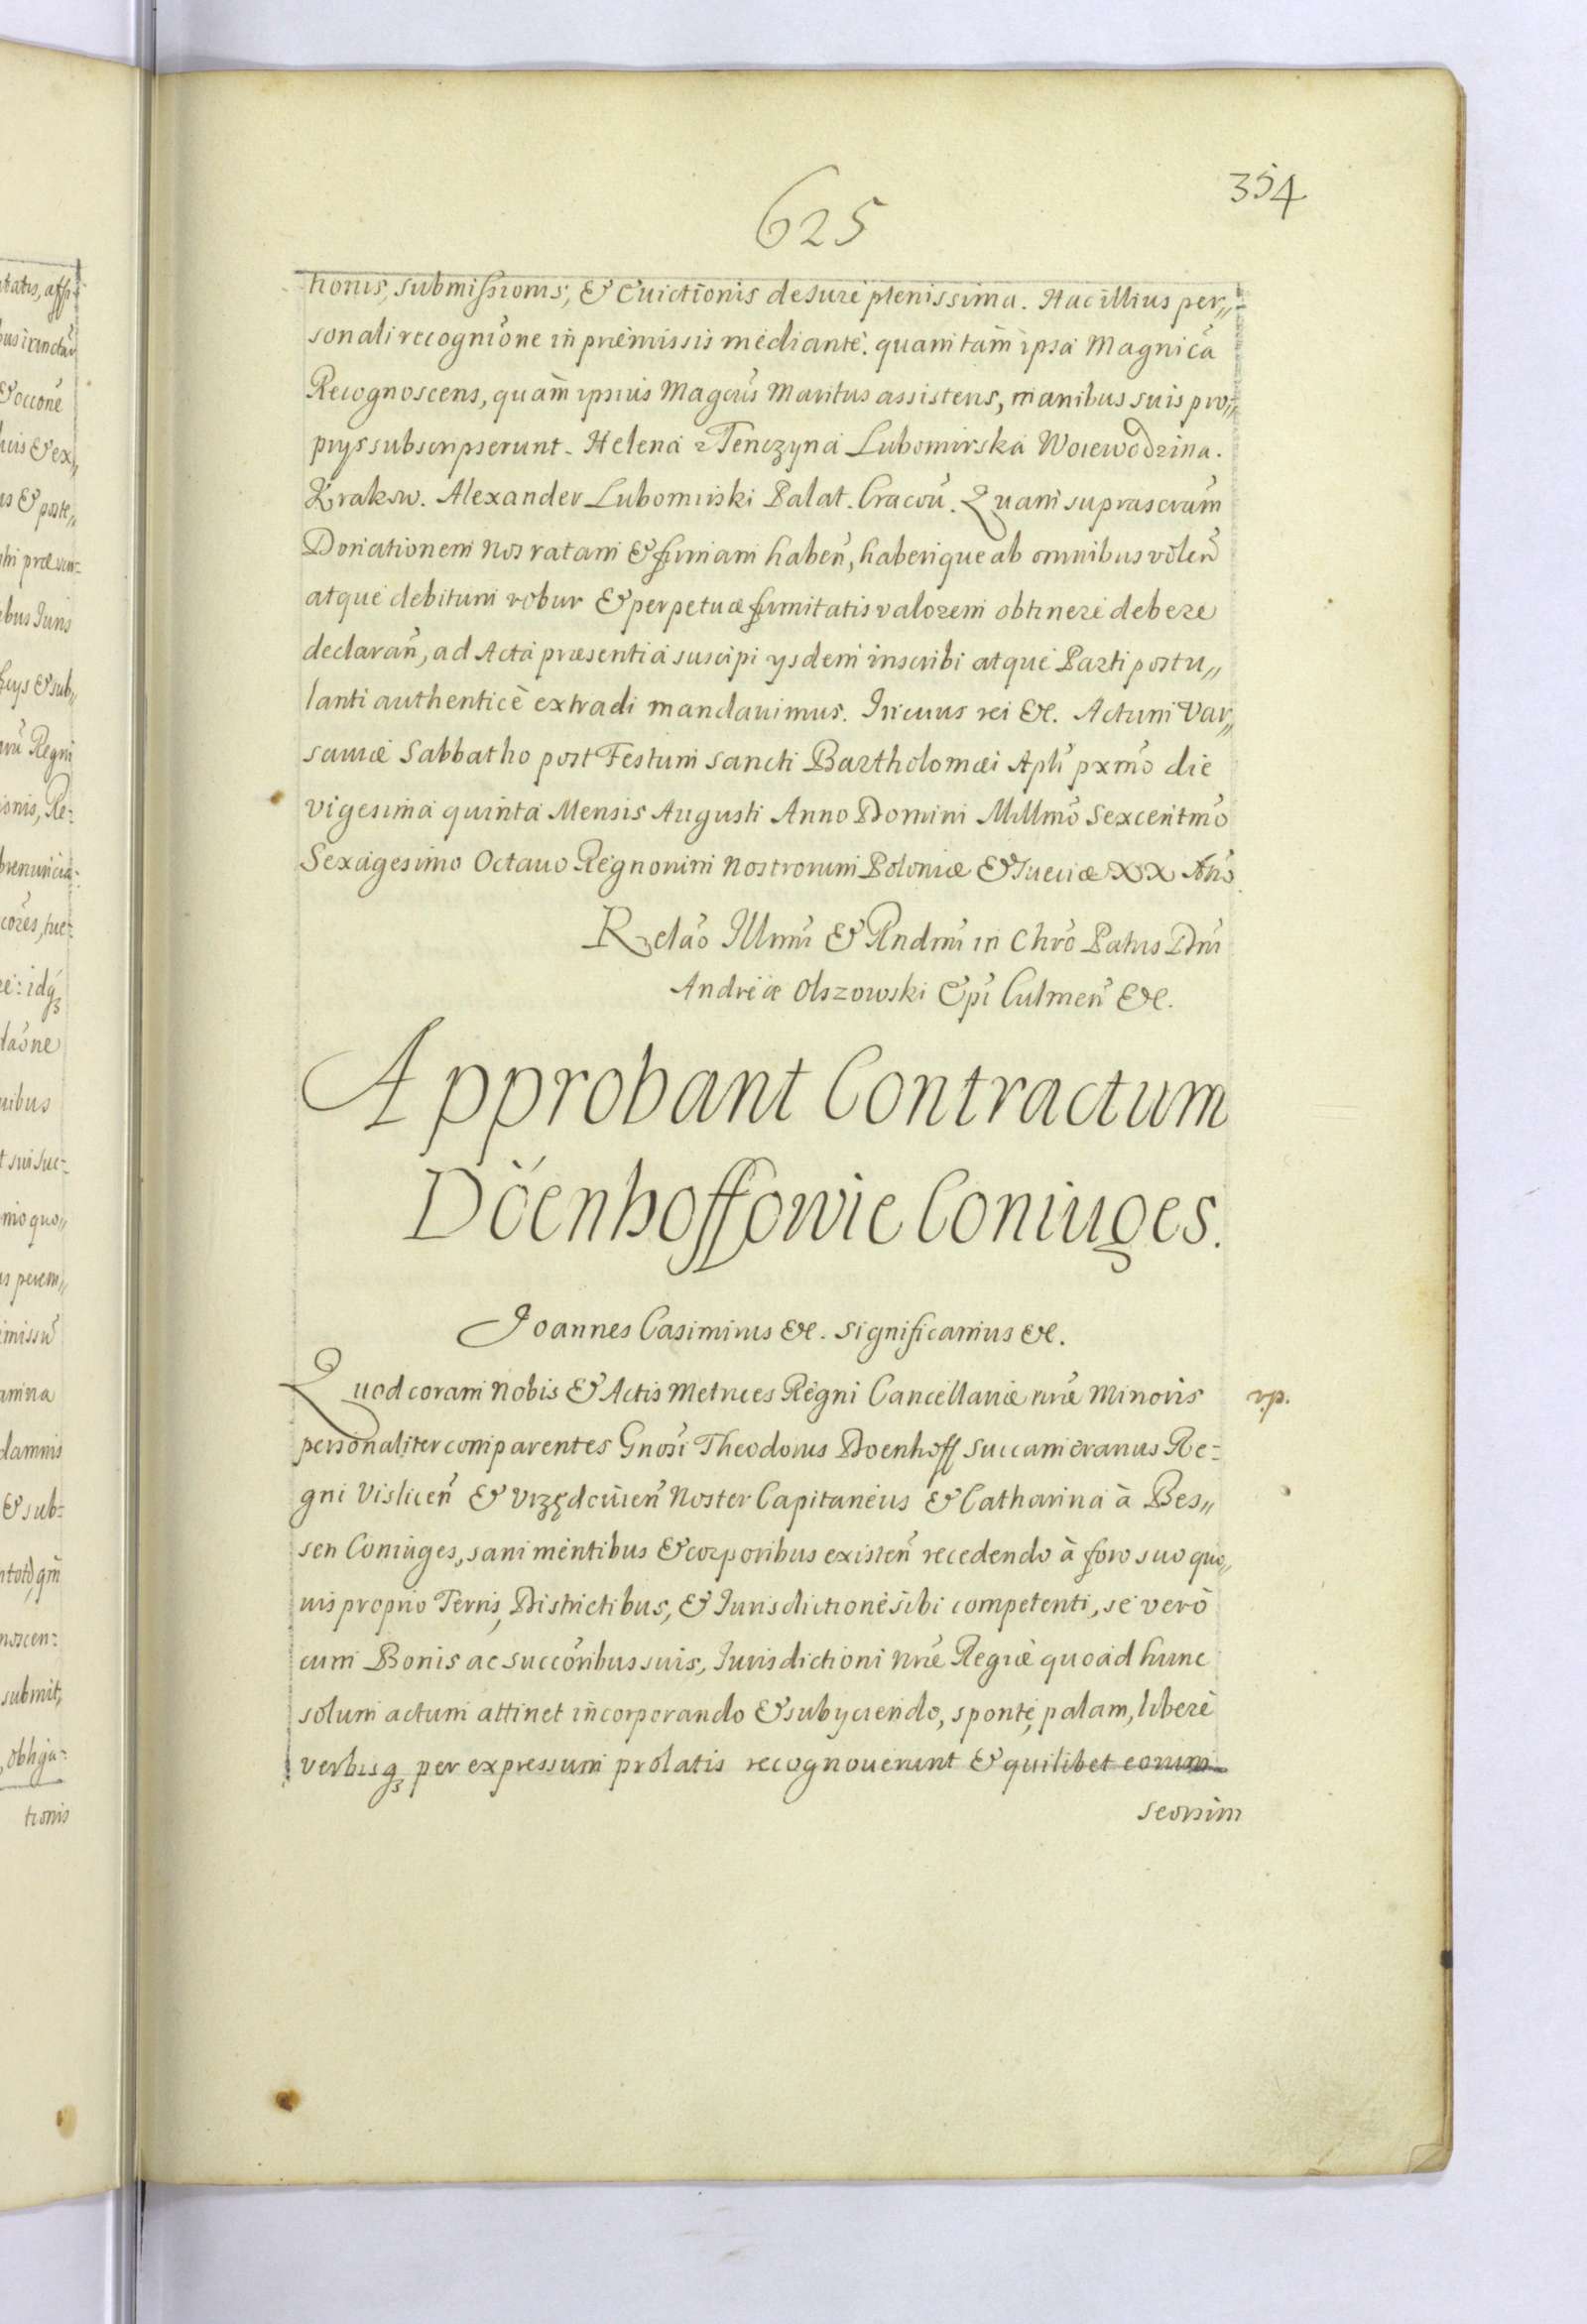 354
625
tionis, submissionis, & Euictionis de Iure plenissima. Hac illius per„
sonali recogni͠one in præmissis mediante. quam tàm ipsa Magnica͠
Recognoscens, quàm ipsius Magcus͠ Maritus assistens, manibus suis pro„
prys subscripserunt. Helena z Tenczyna Lubomirska Woiewodzina.
Kraksw. Alexander Lubomirski Palat. Cracou͠. Quam suprascram͠
Donationem Nos ratam & firmam haben͠, haberique ab omnibus volen͠
atque debitum robur & perpetuæ firmitatis valorem obtinere debere
declaran͠, ad Acta præsentia suscipi ysdem inscribi atque Parti postu„
lanti authenticè extradi mandauimus. In cuius rei &c. Actum Var„
sauiæ Sabbatho post Festum Sancti Bartholomæi Apli͠ pxmo͠ die
vigesima quinta Mensis Augusti Anno Domini Millmo͠ Sexcentmo͠
Sexagesimo Octauo Regnorum Nostrorum Poloniæ & Sueciæ XX An͠o
Relao͠ Illmi͠ & Rndmi͠ in Chro͠ Patris Dni͠
Andreæ Olszowski Epi͠ Culmen͠ &c.
Approbant Contractum
Döenhoffowie Coniuges.
Joannes Casimirus &c. Significamus &c.
Quod coram Nobis & Actis Metrices Regni Cancellariæ nr͠æ Minoris
r.p.
personaliter comparentes Gnosi͠ Theodorus Doenhoff Succamerarius Re=
gni Vislicen͠ & Vrzędouien͠ Noster Capitaneus & Catharina à Bes„
sen Coniuges, sani mentibus & corporibus existen͠ recedendo à foro suo quo„
uis proprio Terris, Districtibus, & Iurisdictione sibi competenti, se verò
cum Bonis ac succoribus͠ suis, Iurisdictioni nr͠æ Regiæ quoad hunc
solum actum attinet incorporando & subyciendo, sponte, palam, liberè
verbisq; per expressum prolatis recognouerunt & quilibet eorum
seorsim